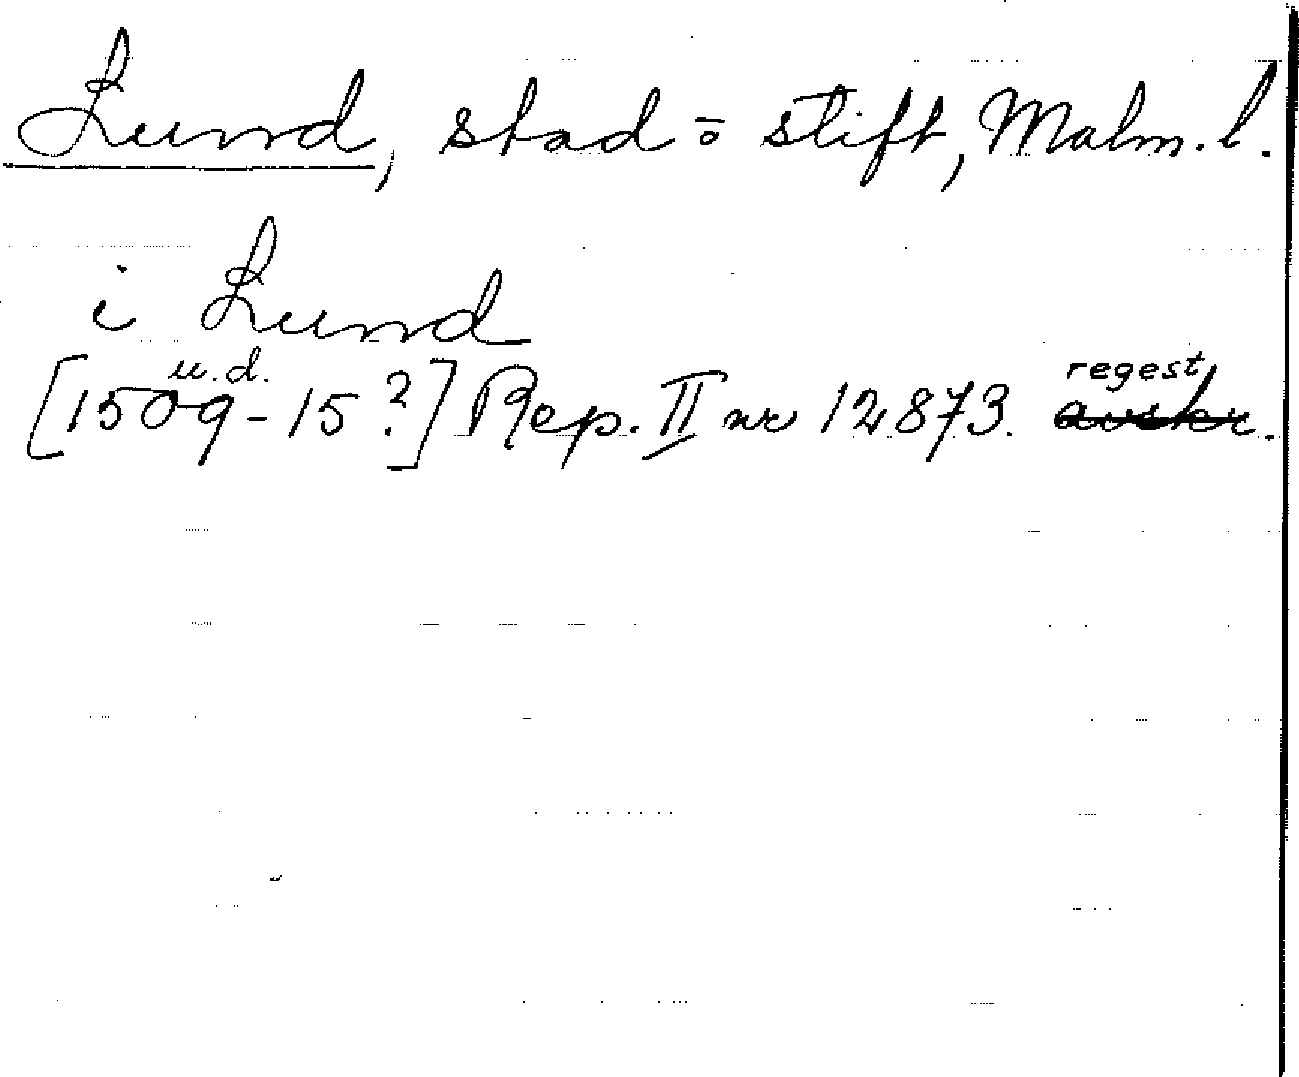 Lund, stad o stift, Malm. l.
i Lund
u.d. regest
[1509-15?] Rep. II nr 12873. avskr.